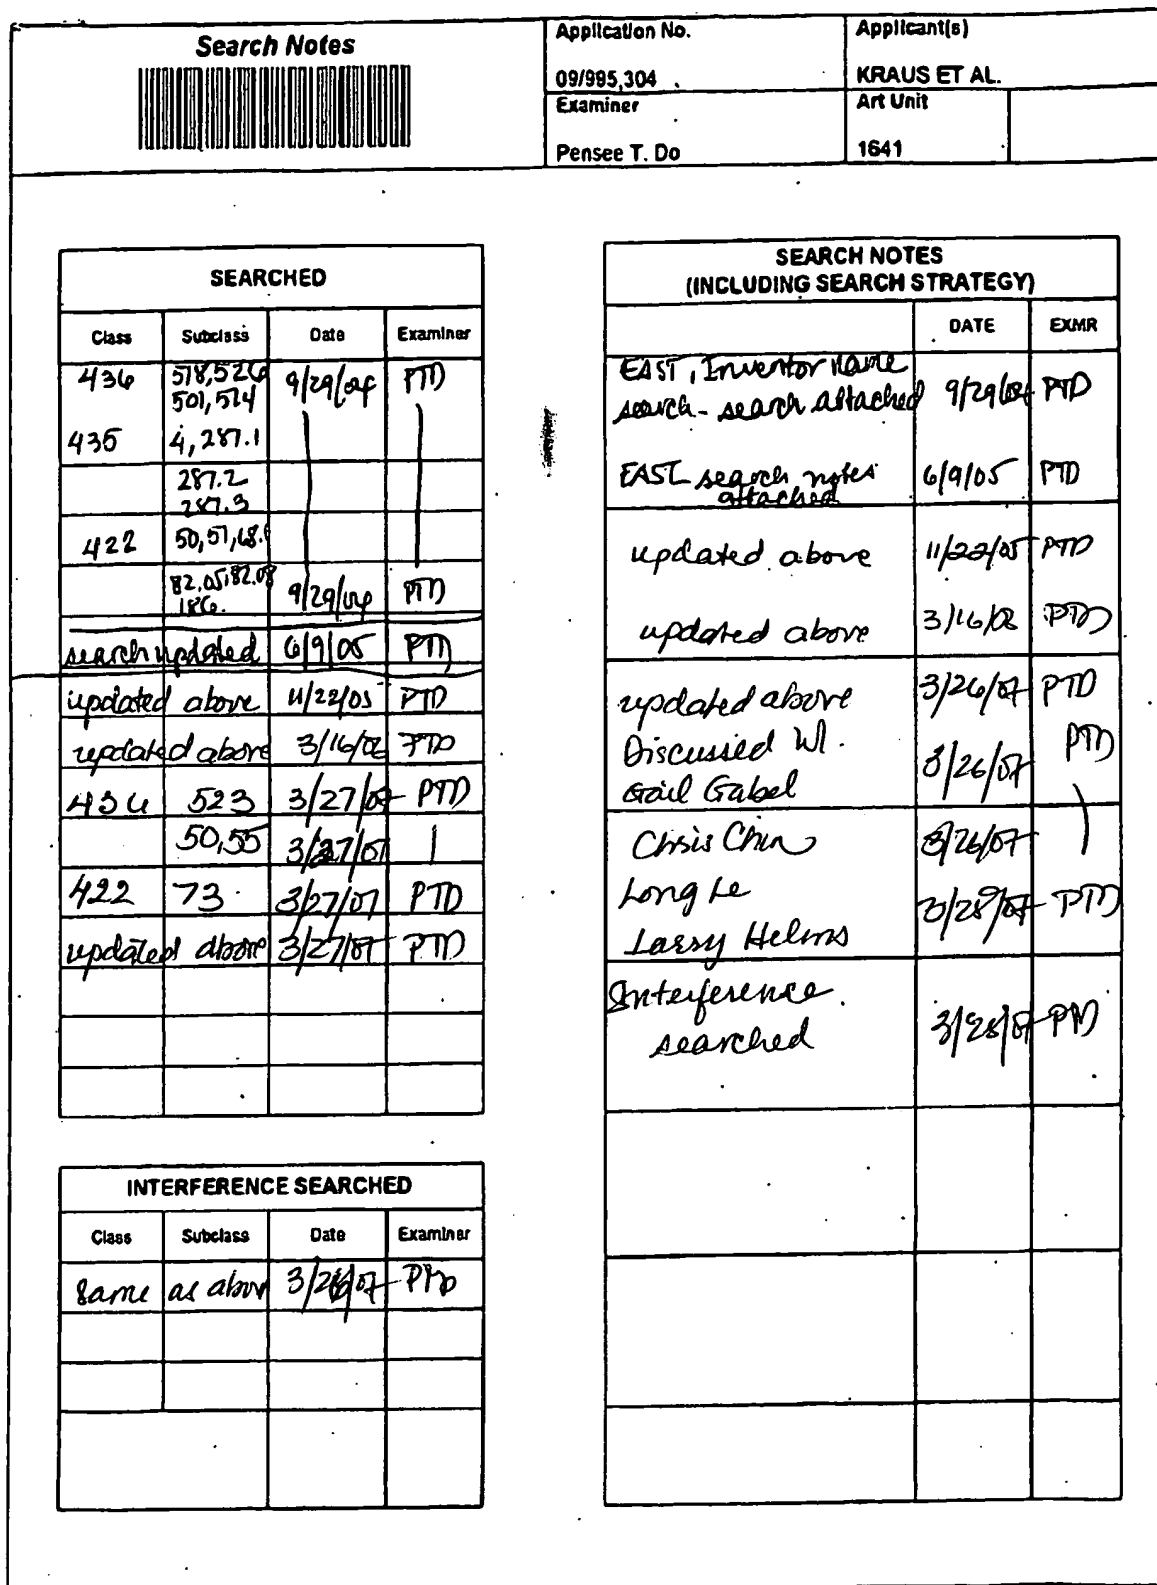 Search Notes
Application No.
09/995,304
Applicant(s)
KRAUS ET AL.
Examiner
Pensee T. Do
Art Unit
1641
SEARCHED
Class Subclass Date Examiner
436 518,526 9/29/04 PTD
501, 524
435 4, 287.1
287.2
287.3
422 50, 57, 68.1
82.05, 82.08 9/29/04 PTD
186.
search updated 6/9/05 PTD
updated above 11/22/05 PTD
updated above 3/16/06 PTD
436 523 3/27/07 PTD
50,55 3/27/07
422 73 3/27/07 PTD
updated above 3/27/07 PTD
INTERFERENCE SEARCHED
Class Subclass Date Examiner
Same as above 3/28/07 PTD
SEARCH NOTES
(INCLUDING SEARCH STRATEGY)
DATE EXMR
EAST, Inventor name
search - search attached 9/29/04 PTD
EAST search notes 6/9/05 PTD
attached
updated above 11/22/05 PTD
updated above 3/16/06 PTD
updated above 3/26/07 PTD
Discussed W/. PTD
Gail Gabel 3/26/07
Chris Chin 3/26/07
Long Le 3/28/07 PTD
Larry Helms
Interference
searched 3/28/07 PTD